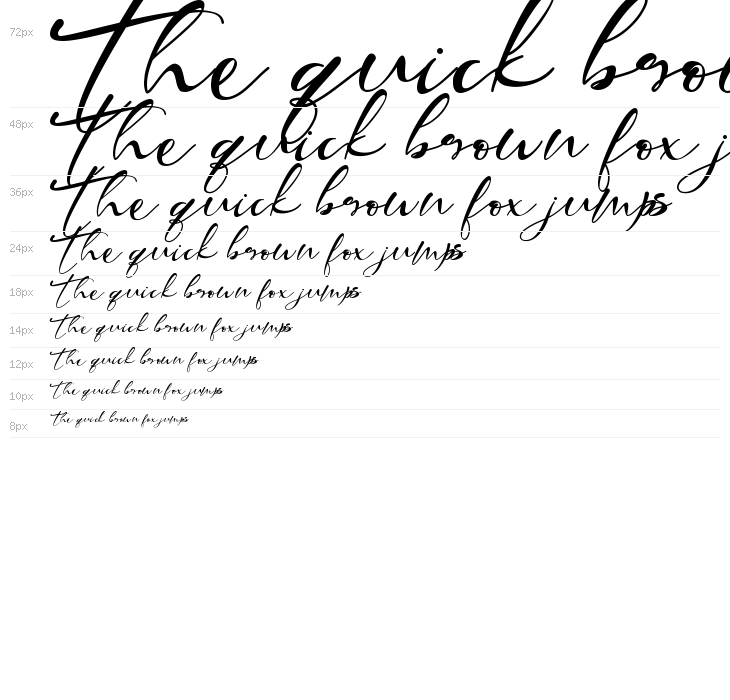 72px The quick brou
48px The quick brown fox j
36px The quick brown fox jumps
24px The quick brown fox jumps
18px The quick brown fox jumps
14px The quick brown fox jumps
12px The quick brown fox jumps
10px The quick brown fox jumps
8px The quick brown fox jumps